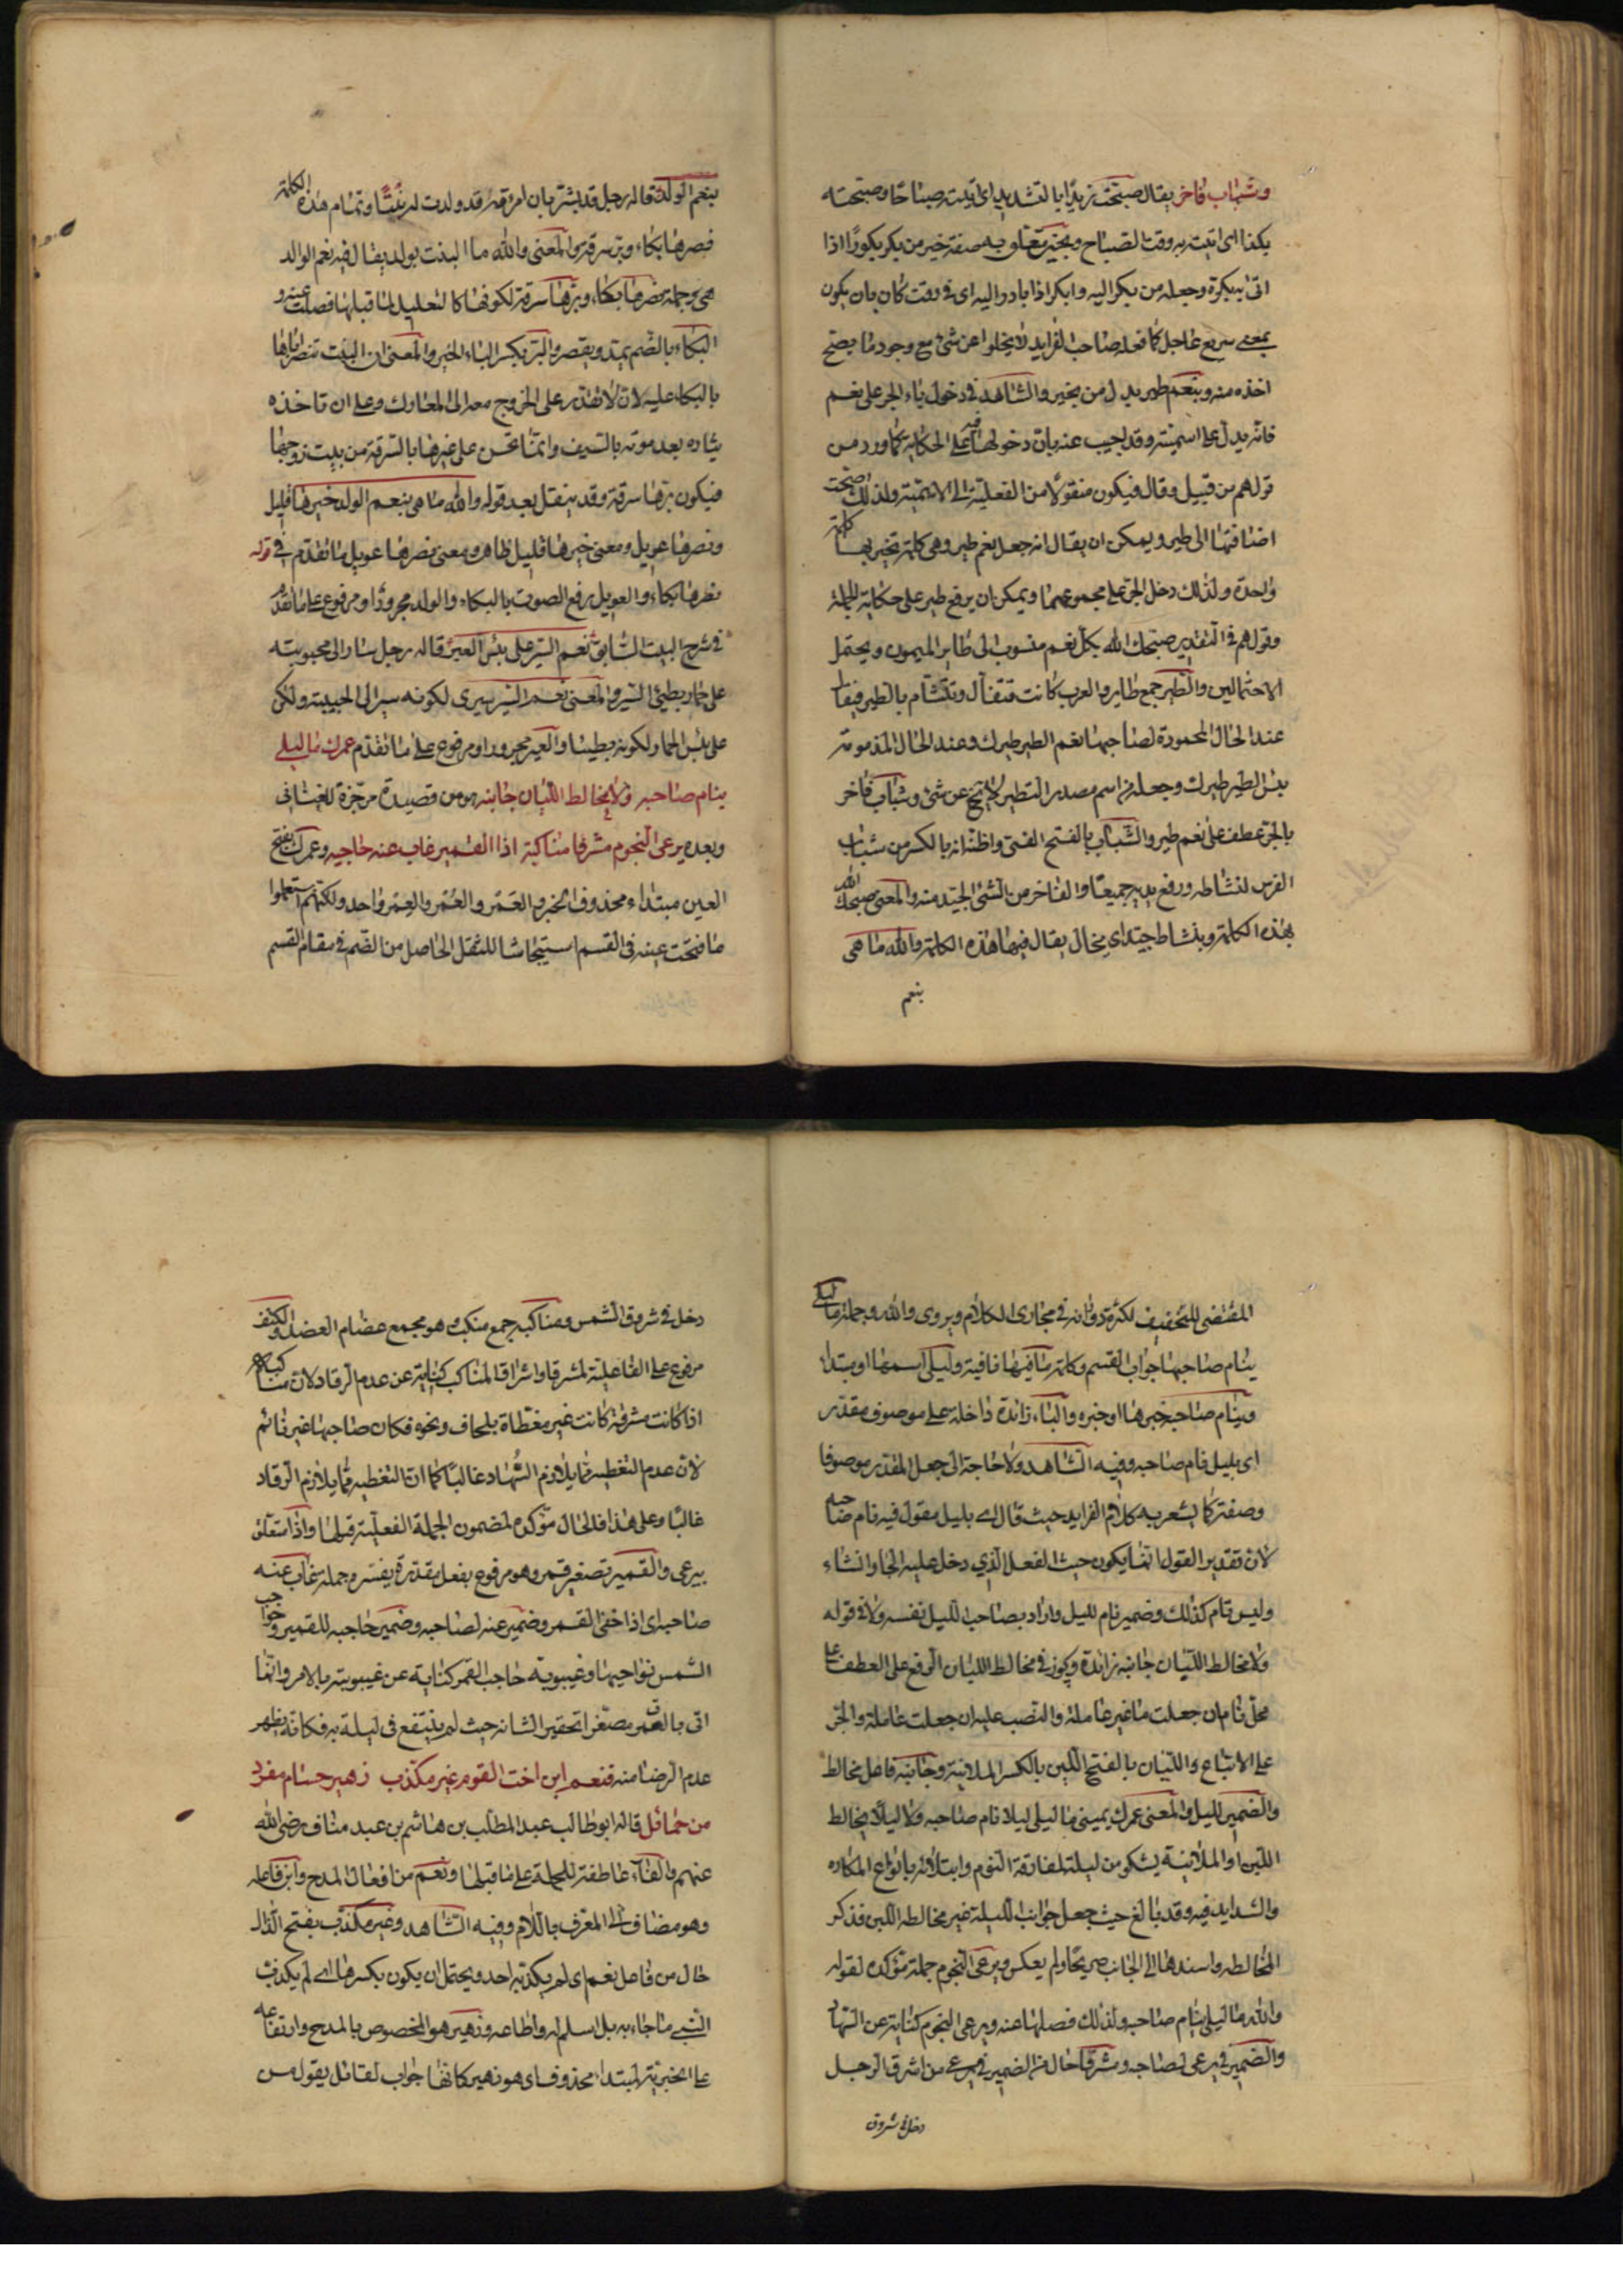 وشباب فاخر يقال صبّحت زيدا بالتشديد اى اتيته صباحا وصبحته
بكذا اى اتيت به وقت الصباح وبخير متعلق به صفة خير من بكر بكورا اذا
اتى ببكرة وجعله من بكر اليه وابكر اذا بادر اليه اى فى وقت كان بان يكون
بمعنى سريع عاجل كما فعله صاحب الفرايد لا يخلوا عن شئ مع وجود ما يصح
اخذه منه وبنعم طير بدل من بخير والشاهد فى دخول باء الجر على نعم
فانه يدل على اسميته وقد اجيب عنه بان دخولها فيه على الحكاية كما ورد من
قولهم من قبيل وقال فيكون منقولا من الفعلية الى الاسمية ولذلك صحت
اضافتها الى طير ويمكن ان يقال انه جعل نعم طير وهى كلمة تخبر بها كلمة
واحدة ولذلك دخل الجر على مجموعهما ويمكن ان يرفع طير على حكاية الجملة
وقولهم فى التقدير صبحك الله بكل نعم منسوب الى طاير الميمون ويحتمل
الاحتمالين والطير جمع طاير والعرب كانت تتفأل وتتشأم بالطير فيقال
عند الحال المحمودة لصاحبها نعم الطير طيرك وعند الحال المذمومة
بئس الطير طيرك وجعله اسم مصدر التطير لا يخ عن شئ وشباب فاخر
بالجر عطف على نعم طير والشباب بالفتح الفتى واظنه انه بالكسر من شباب
الفرس لنشاطه ورفع يديه جميعا والفاخر من الشئ الجيد منه والمعنى صبحك الله
بهذه الكلمة وبنشاط جيد اى بحال يقال فيها هذه الكلمة والله ما هى
بنعم
بنعم الولد قاله رجل قد بشر بان امرءته قد ولدت له بنتا وتمام هذه الكلمة
نصرها بكاء وبرها سرقة والمعنى والله ما البنت بولد يقال فيه نعم الوالد
هى وجملة نصرها بكاء وبرها سرقة لكونها كالتعليل لما قبلها فصلت عنه و
البكاء بالضم يمد ويقصر والبر بكسر الباء الخير والمعنى ان البنت تنصر اباها
بالبكاء عليه لان لا تقدر على الخروج معه الى المعارك وعلى ان تاخذه
بثاره بعد موته بالسيف وانما تحسن على غيرها بالسرقة من بيت زوجها
فيكون برها سرقة وقد ينقل بعد قوله والله ما هى بنعم الولد خيرها قليل
ونصرها عويل ومعنى خيرها قليل ظاهر ومعنى نصرها عويل ما تقدم فى قوله
نصرها بكاء والعويل رفع الصوت بالبكاء والولد مجرور او مرفوع على ما تقدم
فى شرح البيت السابق نعم السير على بئس العير قاله رجل سار الى محبوبته
على حمار بطيئ السير والمعنى نعم السير سيرى لكونه سيرا الى الحبيبة ولكن
على بئس الحمار لكونه بطيئا والعير مجرور او مرفوع على ما تقدم عمرك ما ليلى
بنام صاحبه ولا مخالط الليان جانبه هو من قصيدة مرجزة للغيثانى
وبعده يرعى النجوم مشرفا مناكبه اذا القمير غاب عنه حاجبه وعمرك بفتح
العين مبتداء محذوف الخبر والعَمر والعُمر والعِمر واحد ولكنهم استعملوا
ما فتحت عينه فى القسم استيحاشا للثقل الحاصل من الضم فى مقام القسم
المقتضى للتخفيف لكثرة دورانه فى مجارى الكلام ويروى والله وجملة ما ليلى
بنام صاحبها جواب القسم وكلمة ما فيها نافية وليلى اسمها او مبتدا
وبنام صاحبه خبرها او خبره والباء زائدة داخلة على موصوف مقدر
اى بليل نام صاحبه وفيه الشاهد ولا حاجة الى جعل المقدر موصوفا
وصفة كما يشعر به كلام الفرايد حيث قال اى بليل مقول فيه نام صاحبه
لان تقدير القول انما يكون حيث الفعل الذي دخل عليه الجار انشاء
وليس نام كذلك وضمير نام لليل واراد بصاحب الليل نفسه ولا فى قوله
ولا مخالط الليان جانبه زائدة ويجوز فى مخالط الليان الرفع على العطف على
محل نام ان جعلت ما غير عاملة والنصب عليه ان جعلت عاملة والجر
على الاتباع والليان بالفتح اللين بالكسر الملاينة وجانبه فاعل مخالط
والضمير لليل والمعنى عمرك يمينى ما ليلى ليلا نام صاحبه ولا ليلا مخالط
اللين او الملاينة يشكو من ليلته لمفارقة النوم وابتلائه بانواع المكاره
والشدايد فيه وقد بالغ حيث جعل جوانب الليلة غير مخالطه اللين فذكر
المخالطه واسندها الى الجانب صريحا ولم يعكس ويرعى النجوم جملة مؤكده لقوله
والله ما ليلى بنام صاحبه ولذلك فصلها عنه ويرعى النجوم كناية عن السهاد
والضمير فى يرعى لصاحبه ومشرفا حال من الضمير فى يرعى من اشرق الرجل
دخل فى شروق
دخل فى شروق الشمس ومناكبه جمع منكب وهو مجمع عضام العضد والكتف
مرفوع على الفاعلية لمشرفا واشراق المناكب كناية عن عدم الرقاد لان مناكبه
اذا كانت مشرقة كانت غير مغطاة بلحاف ونحوه فكان صاحبها غير نائم
لان عدم التغطيه مما يلازم السهاد غالبا كما ان التغطيه مما يلازم الرقاد
غالبا وعلى هذا فالحال مؤكده لمضمون الجملة الفعلية قبلها واذا متعلق
بيرعى والقمير تصغير قمر وهو مرفوع بفعل مقدر يفسره جملة غاب عنه
صاحبه اى اذا خفى القمر وضمير عنه لصاحبه وضمير حاجبه للقمير وحواجب
الشمس نواحيها وغيبوبة حاجب القمر كناية عن غيبوبته بالامر وانما
اتى بالقمر مصغرا تحقيرا لشانه حيث لم ينتفع فى ليلة به فكانه يظهر
عدم الرضا منه فنعم ابن اخت القوم غير مكذب زهير حسام مفرد
من حمائل قاله ابوطالب عبد المطلب بن هاشم بن عبد مناف رضى الله
عنهم والفاء عاطفة للجملة على ما قبلها ونعم من افعال المدح وابن فاعله
وهو مضاف الى المعرف باللام وفيه الشاهد وغير مكذب بفتح الذال
حال من فاعل نعم اى لم يكذبه احد ويحتمل ان يكون بكسرها اى لم يكذب
النبى ما جاء به بل اسلم له واطاعه وزهير هو المخصوص بالمدح وارتفاعه
على الخبرية لمبتداء محذوف اى هو زهير كانها جواب لقائل يقول من